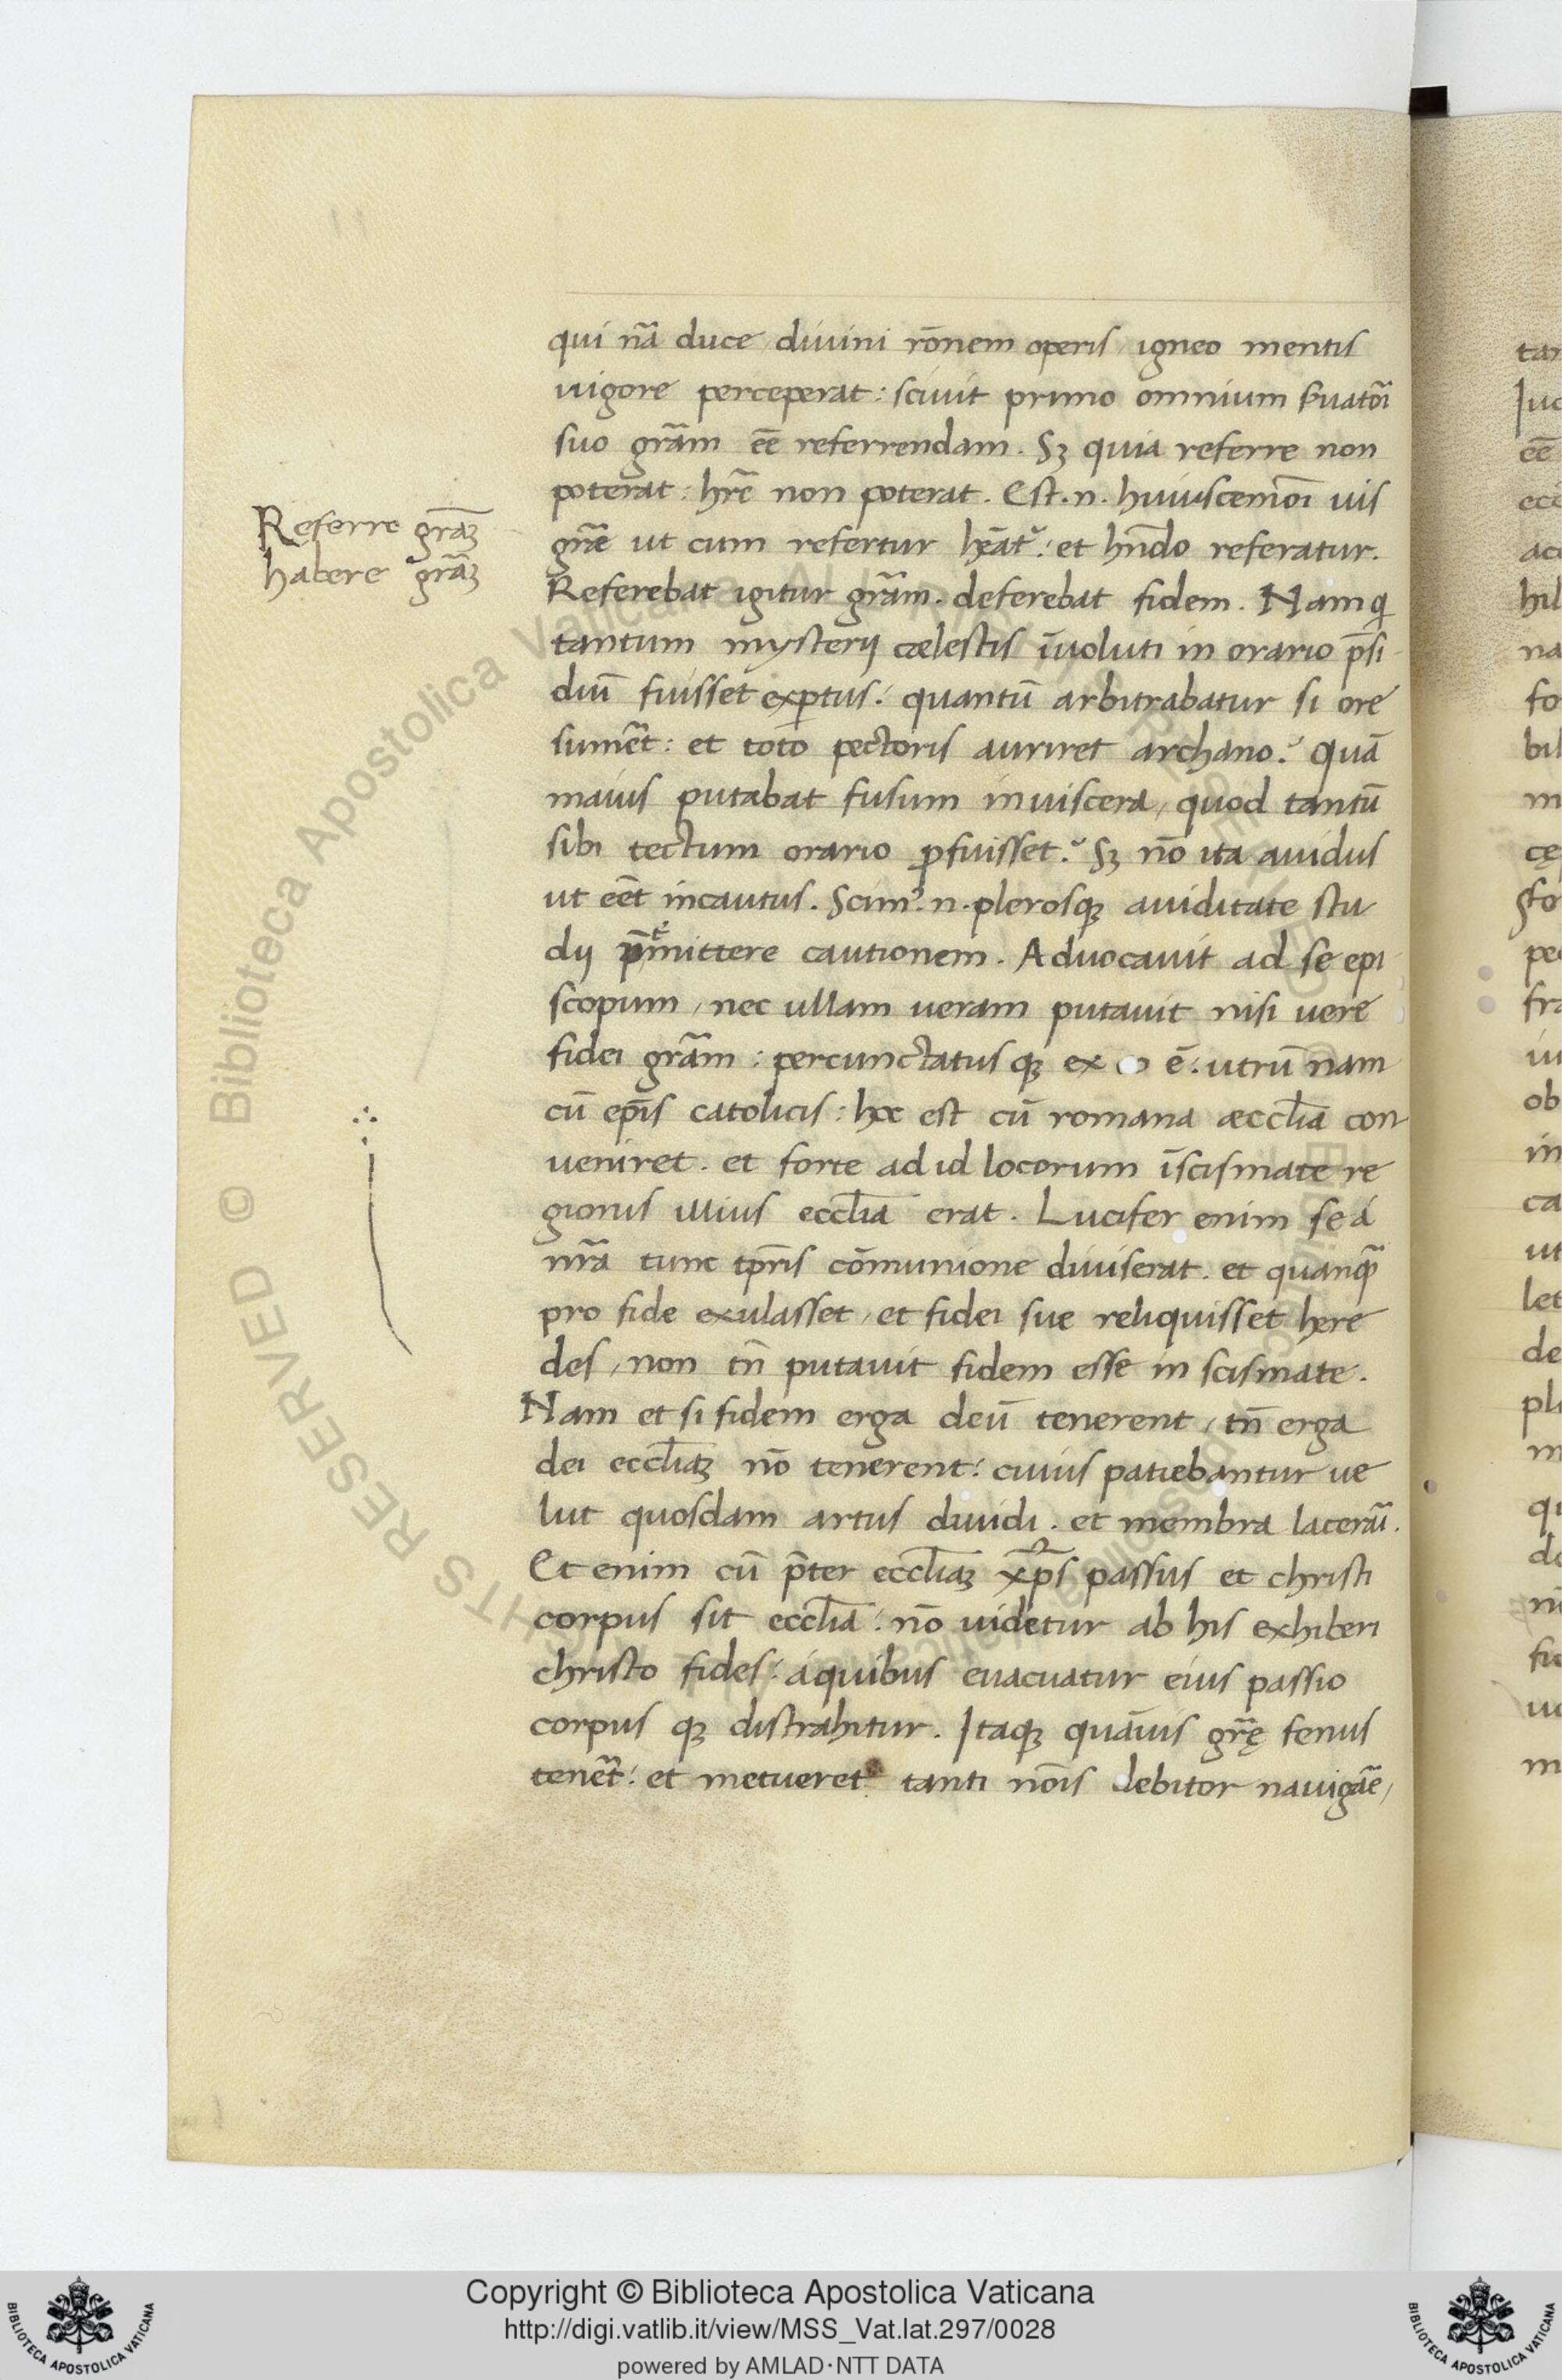 qui nãa duce divini rõnem operis, igneo mentis
vigore perceperat: scivit primo omnium ẜvatoĩ
suo grãm eẽ referrendam. Sꝫ quia referre non
poterat: hrẽ non poterat. Est.n. huiuscemoĩ vis
Referre grãꝫ
habere grãꝫ
grãe ut cum refertur hẽat᷑: et hñdo referatur.
Referebat igitur grãm. deferebat fidem. Nam q̃
tantum mysterij cælestis ĩvoluti in orario p̃si
diũ fuisset exꝑtus: quantũ arbitrabatur si ore
sumẽt: et toto pectoris auriret archano? Quã
maius putabat fusum in viscera, quod tantũ
sibi tectum orario ꝓfuisset? Sꝫ nõ ita avidus
ut eẽt incautus. Scimꝰ.n. plerosqꝫ aviditate stu
dij p̃mittere cautionem. Advocavit ad se epi
scopum, nec ullam veram putavit nisi vere
fidei grãm: percunctatus qꝫ ex eo ẽ: utrũ nam
cũ ep̃is catolicis: hoc est cũ romana æccl̃ia con
veniret. et forte ad id locorum ĩ scismate re
gionis illius eccl̃ia erat. Lucifer enim se á
nrã tunc tp̃ris cõmunione diviserat. et quanqꝫ̃
pro fide exulasset, et fidei sue reliquisset here
des, non tñ putavit fidem esse in scismate.
Nam et si fidem erga deũ tenerent, tñ erga
dei eccl̃iaꝫ nõ tenerent: cuius patiebantur ve
lut quosdam artus dividi. et membra lacerãi.
Et enim cũ p̃ter eccl̃iaꝫ xp̃s passus et christi
corpus sit eccl̃ia: nõ videtur ab his exhiberi
christo fides: á quibus evacuatur eius passio
corpus qꝫ distrahitur. Itaqꝫ quãvis grą̃ę fenus
tenẽt: et metueret tanti nõis debitor navigãe,
© Biblioteca Apostolica Vaticana ALL RIGHTS RESERVED
Copyright © Biblioteca Apostolica Vaticana
http://digi.vatlib.it/view/MSS_Vat.lat.297/0028
powered by AMLAD·NTT DATA
BIBLIOTECA APOSTOLICA VATICANA
BIBLIOTECA APOSTOLICA VATICANA